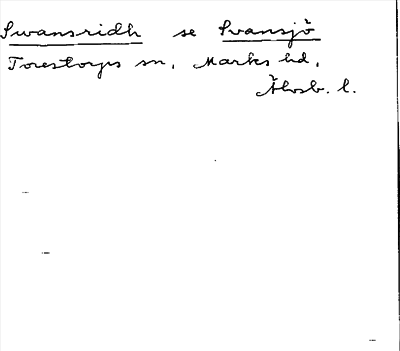 Swansridh se Svansjö
Torestorps sn, Marks hd,
Älvsb. l.